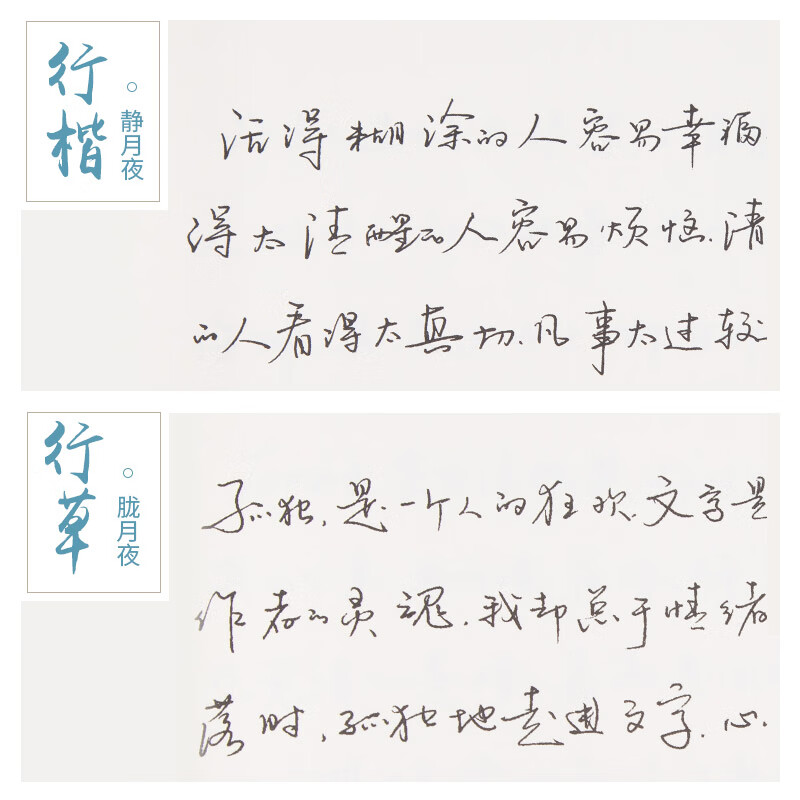 行楷
静月夜
活得糊涂的人容易幸福
得太清醒的人容易烦恼.清
的人看得太真切.凡事太过较
行草
胧月夜
孤独,是一个人的狂欢.文字是
作者的灵魂.我却总于情绪
落时,孤独地走进文字.心.